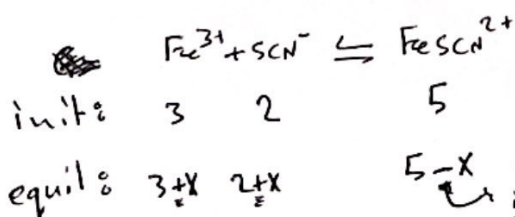 Fe³⁺ + SCN⁻ ⇌ FeSCN²⁺
init: 3 2 5
equil: 3+x 2+x 5-x